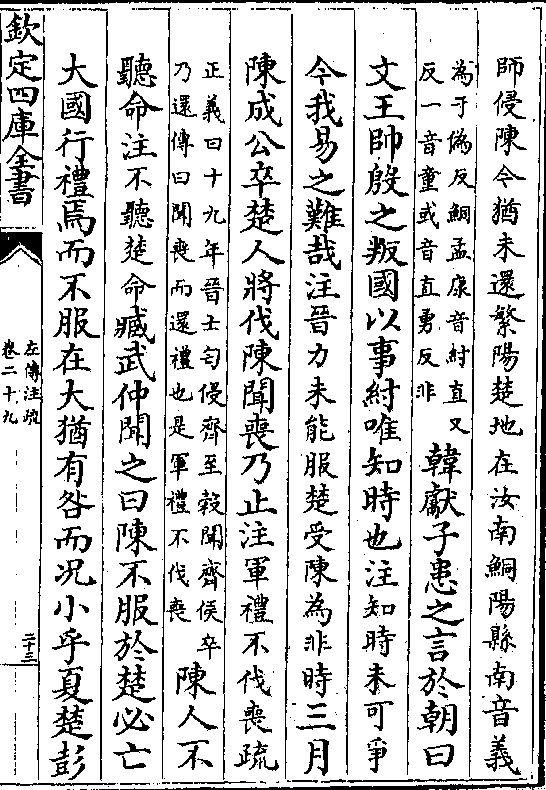 師侵陳今猶未還繁陽楚地在汝南鮦陽縣南音義
為于偽反鮦孟康音紂直又
反一音童或音直勇反非
韓獻子患之言於朝曰
文王帥殷之叛國以事紂唯知時也注知時未可爭
今我易之難哉注晉力未能服楚受陳為非時三月
陳成公卒楚人將伐陳聞喪乃止注軍禮不伐喪疏
正義曰十九年晉士匄侵齊至穀聞齊侯卒
乃還傳曰聞喪而還禮也是軍禮不伐喪
陳人不
聽命注不聽楚命臧武仲聞之曰陳不服於楚必亡
大國行禮焉而不服在大猶有咎而况小乎夏楚彭
欽定四庫全書
左傳注疏
卷二十九
二十三